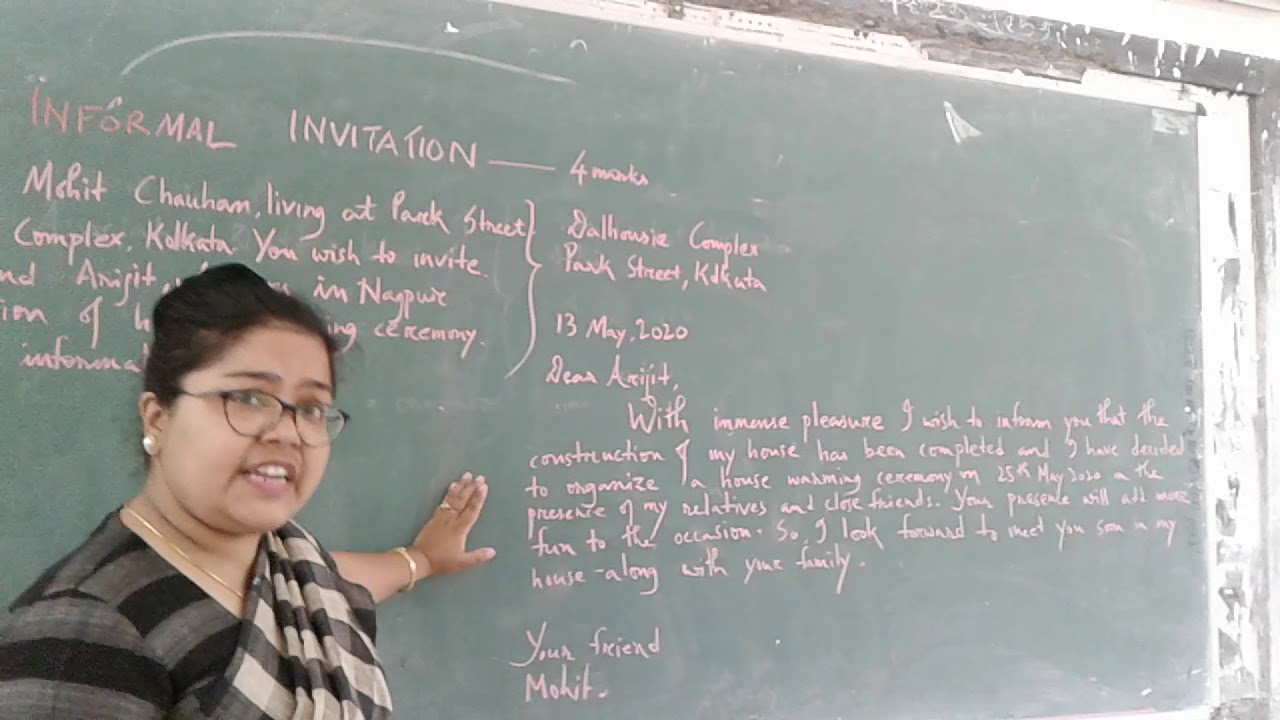 INFORMAL INVITATION — 4 marks
Mohit Chauham, living at Park Street
Complex, Kolkata. You wish to invite
nd Arijit in Nagpur
tion of h ing ceremony.
informa
Dalhousie Complex
Park Street, Kolkata
13 May, 2020
Dear Arijit,
With immense pleasure I wish to inform you that the
construction of my house has been completed and I have decided
to organize a house warming ceremony on 25th May 2020 in the
presence of my relatives and close friends. Your presence will add more
fun to the occasion. So, I look forward to meet you soon in my
house - along with your family.
Your friend
Mohit.